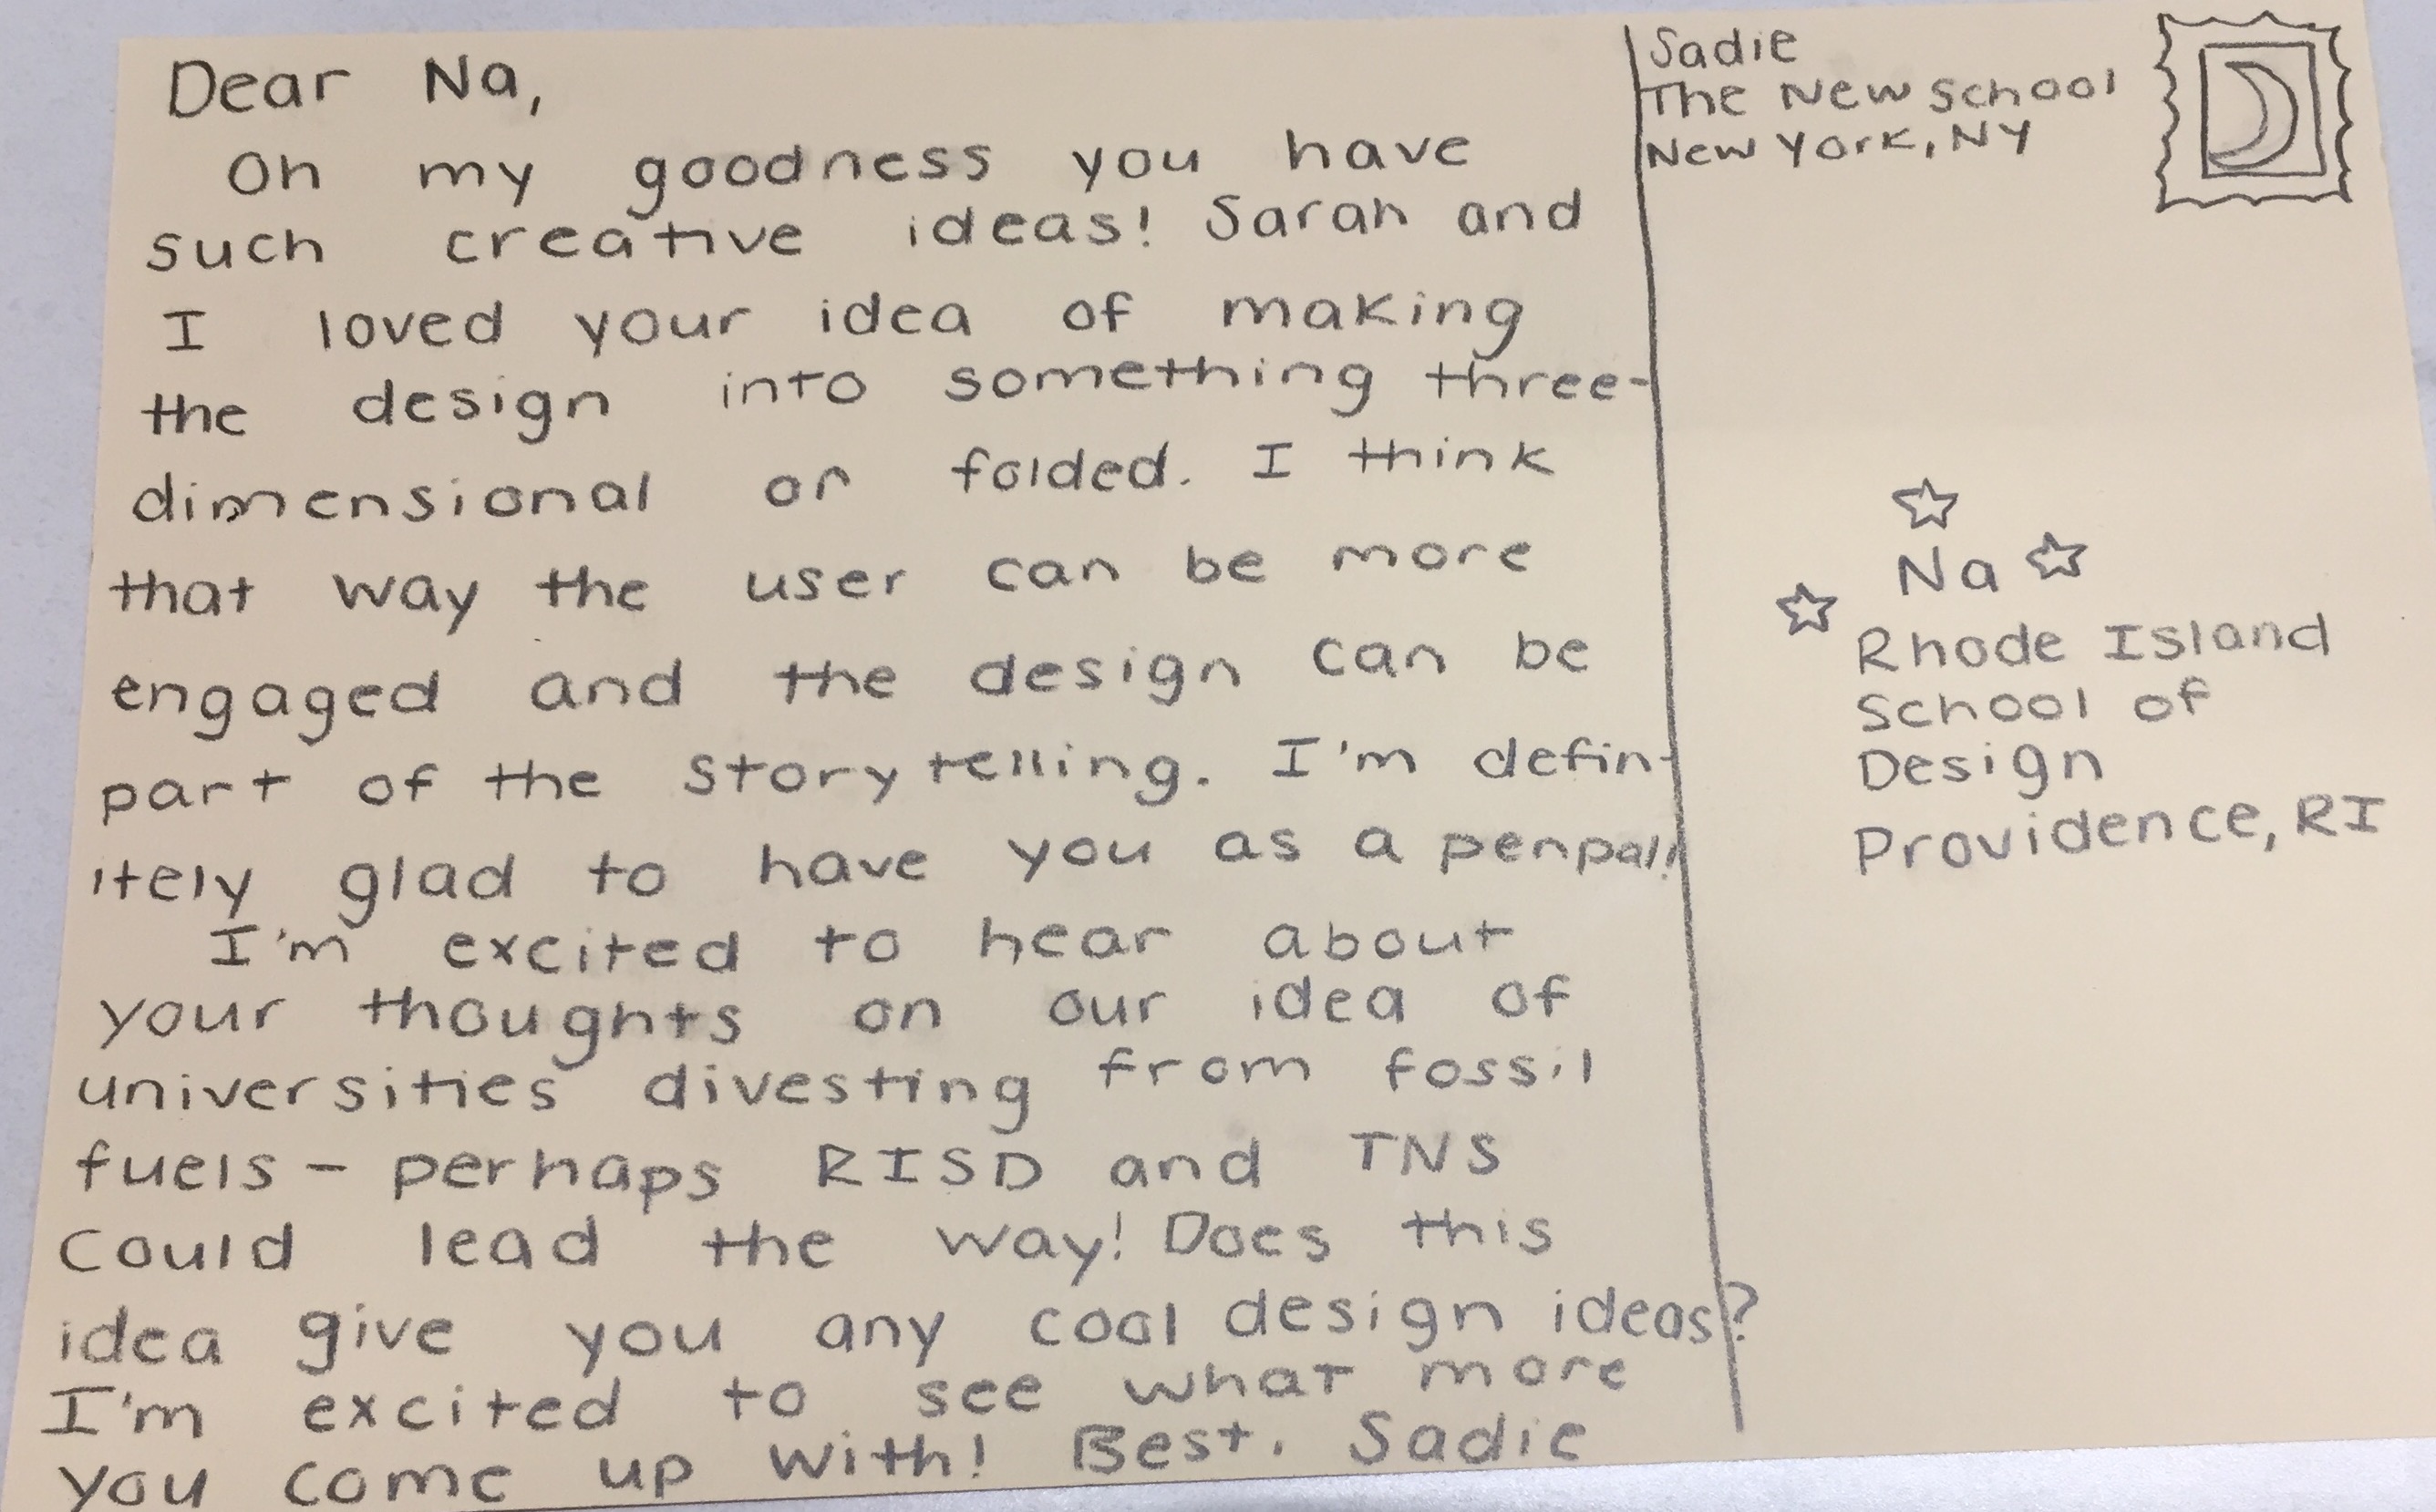 Dear Na,
Oh my goodness you have
such creative ideas! Sarah and
I loved your idea of making
the design into something three-
dimensional or folded. I think
that way the user can be more
engaged and the design can be
part of the storytelling. I'm defin-
itely glad to have you as a penpal!
I'm excited to hear about
your thoughts on our idea of
universities divesting from fossil
fuels - perhaps RISD and TNS
could lead the way! Does this
idea give you any cool design ideas?
I'm excited to see what more
you come up with! Best, Sadie
Sadie
The New School
New York, NY
Na
Rhode Island
School of
Design
Providence, RI